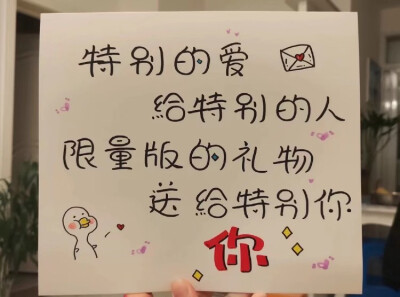 特别的爱
给特别的人
限量版的礼物
送给特别你
你